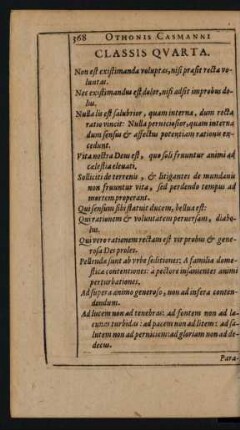 368 OTHONIS CASMANNI
CLASSIS QVARTA.
Non est existimanda voluptas, nisi præsit recta vo-
luntas.
Nec existimandus est dolor, nisi adsit improbus do-
lus.
Nulla lis est salubrior, quam interna, dum recta
ratio vincit: Nulla perniciosior, quam interna
dum sensus & affectus potentiam rationis ex-
cedunt.
Vita nostra Deus est, quo soli fruuntur animi ad
cælestia eleuati.
Solliciti de terrenis, & litigantes de mundanis
non fruuntur vita, sed perdendo tempus ad
mortem properant.
Qui sensum sibi statuit ducem, bellua est:
Qui rationem & voluntatem peruersam, diabo-
lus.
Qui vero rationem rectam est vir probus & gene-
rosa Dei proles.
Pellendæ sunt ab vrbe seditiones: A familia dome-
stica contentiones: a pectore insanientes animi
perturbationes.
Ad supera animo generoso, non ad infera conten-
dendum.
Ad lucem non ad tenebras: ad fontem non ad la-
cunas turbidas: ad pacem non ad litem: ad sa-
lutem non ad perniciem: ad gloriam non ad de-
decus.
Para-